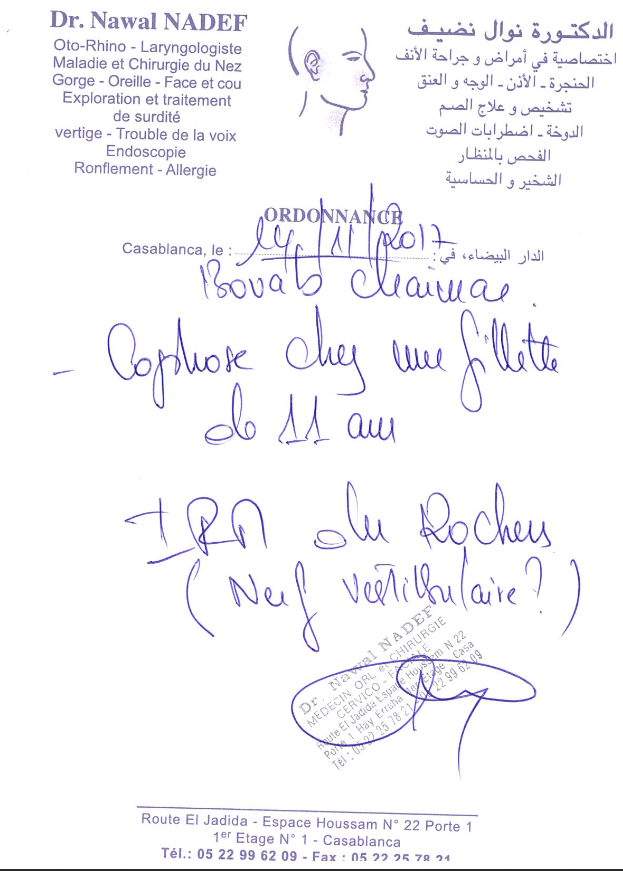 Dr. Nawal NADEF
Oto-Rhino - Laryngologiste
Maladie et Chirurgie du Nez
Gorge - Oreille - Face et cou
Exploration et traitement
de surdité
vertige - Trouble de la voix
Endoscopie
Ronflement - Allergie
الدكتورة نوال نضيف
اختصاصية في أمراض و جراحة الأنف
الحنجرة - الأذن - الوجه و العنق
تشخيص و علاج الصم
الدوخة - اضطرابات الصوت
الفحص بالمنظار
الشخير و الحساسية
ORDONNANCE
Casablanca, le : 14/11/2017 الدار البيضاء، في :
Chaimae
- Cophose chez une fillette
de 11 ans
IRM du Rochers
(Nerf vestibulaire ?)
Dr. Nawal NADEF
MEDECIN ORL et CHIRURGIE
CERVICO - FACIALE
Route El Jadida Espace Houssam N 22
Porte 1 Hay Erraha 1er Etage - Casa
Tél : 05 22 25 78 21 / 05 22 99 62 09
Route El Jadida - Espace Houssam N° 22 Porte 1
1er Etage N° 1 - Casablanca
Tél.: 05 22 99 62 09 - Fax : 05 22 25 78 21